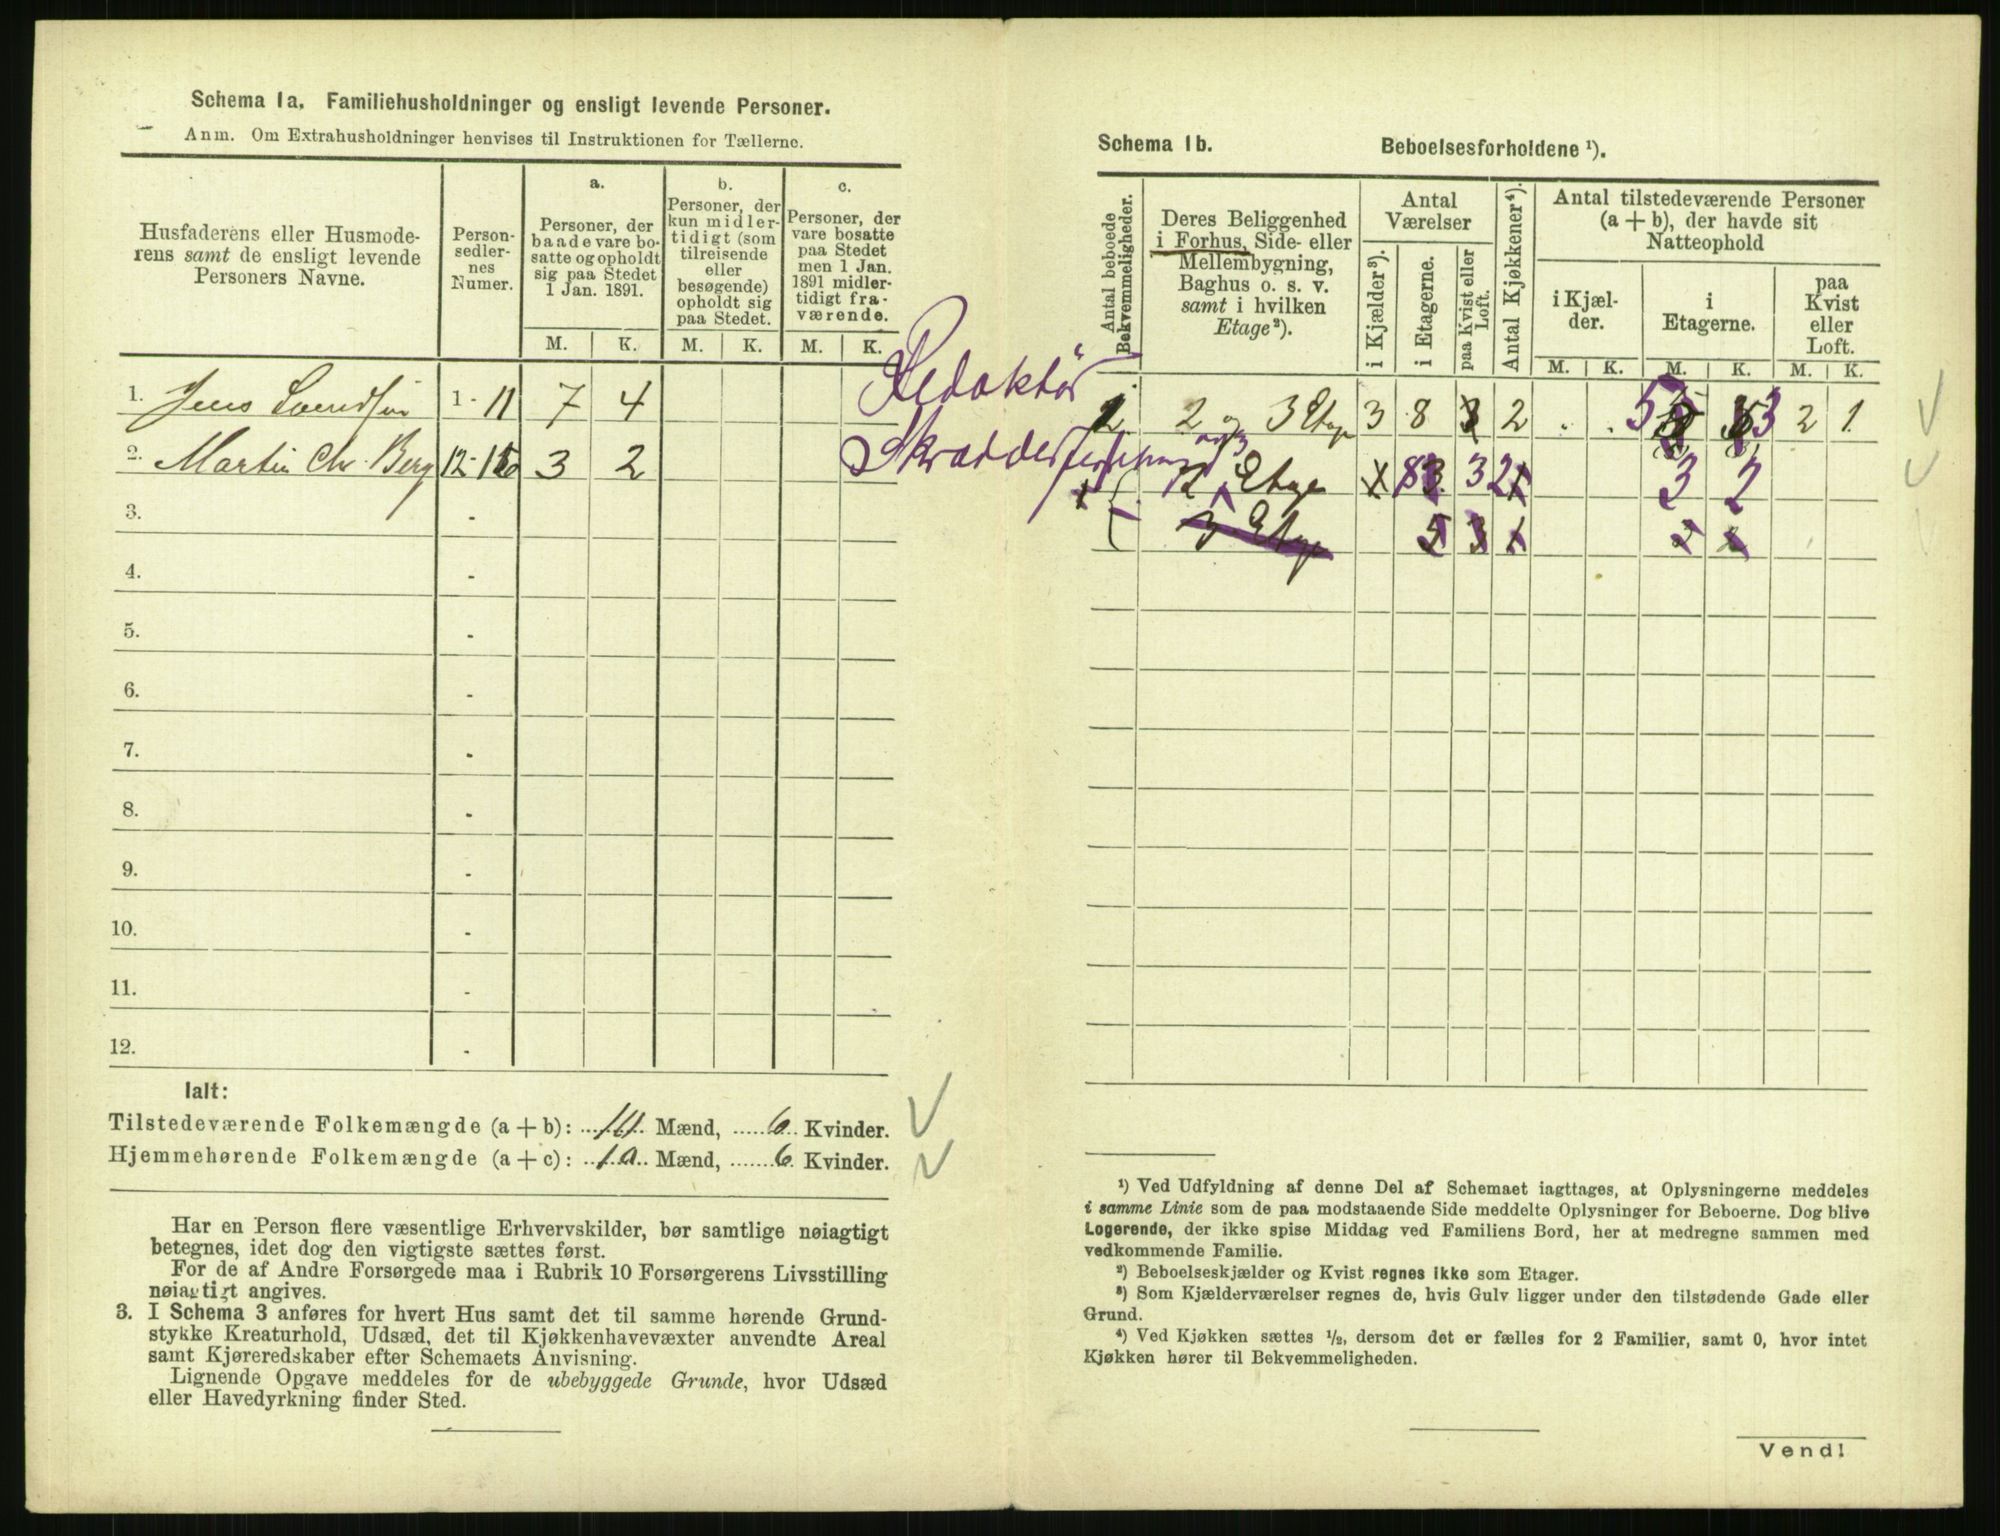 Schema 1a. Familiehusholdninger og ensligt levende Personer.
Anm. Om Extrahusholdninger henvises til Instruktionen for Tællerne.
Husfaderens eller Husmode-
rens samt de ensligt levende
Personers Navne.
Person-
sedler-
nes
Numer.
a.
Personer, der
baade vare bo-
satte og opholdt
sig paa Stedet
1 Jan. 1891.
b.
Personer, der
kun midler-
tidigt (som
tilreisende
eller
besøgende)
opholdt sig
paa Stedet.
c.
Personer, der
vare bosatte
paa Stedet
men 1 Jan.
1891 midler-
tidigt fra-
værende.
M. K. M. K. M. K.
1. Jens 1 - 11 7 4 Redaktør
2. Martin Chr. Berg 12- 3 2
3. -
4. -
5. -
6. -
7. -
8. -
9. -
10. -
11. -
12. -
Ialt:
Tilstedeværende Folkemængde (a + b): Mænd, 6 Kvinder.
Hjemmehørende Folkemængde (a + c): 10 Mænd, 6 Kvinder.
Har en Person flere væsentlige Erhvervskilder, bør samtlige nøiagtigt
betegnes, idet dog den vigtigste sættes først.
For de af Andre Forsørgede maa i Rubrik 10 Forsørgerens Livsstilling
nøiagtigt angives.
3. I Schema 3 anføres for hvert Hus samt det til samme hørende Grund-
stykke Kreaturhold, Udsæd, det til Kjøkkenhavevæxter anvendte Areal
samt Kjøreredskaber efter Schemaets Anvisning.
Lignende Opgave meddeles for de ubebyggede Grunde, hvor Udsæd
eller Havedyrkning finder Sted.
Schema 1b. Beboelsesforholdene ¹).
Antal beboede
Bekvemmeligheder.
Deres Beliggenhed
i Forhus, Side- eller
Mellembygning,
Baghus o. s. v.
samt i hvilken
Etage ²).
Antal
Værelser
i Kjælder ³).
i Etagerne.
paa Kvist eller
Loft.
Antal Kjøkkener ⁴).
Antal tilstedeværende Personer
(a + b), der havde sit
Natteophold
i Kjæl-
der.
i
Etagerne.
paa
Kvist
eller
Loft.
M. K. M. K. M. K.
2 og 3 Etage 3 8 2 5 3 2 1
Etage 3 2 3 2
3 Etage
¹) Ved Udfyldning af denne Del af Schemaet iagttages, at Oplysningerne meddeles
i samme Linie som de paa modstaaende Side meddelte Oplysninger for Beboerne. Dog blive
Logerende, der ikke spise Middag ved Familiens Bord, her at medregne sammen med
vedkommende Familie.
²) Beboelseskjælder og Kvist regnes ikke som Etager.
³) Som Kjælderværelser regnes de, hvis Gulv ligger under den tilstødende Gade eller
Grund.
⁴) Ved Kjøkken sættes ½, dersom det er fælles for 2 Familier, samt 0, hvor intet
Kjøkken hører til Bekvemmeligheden.
Vend!